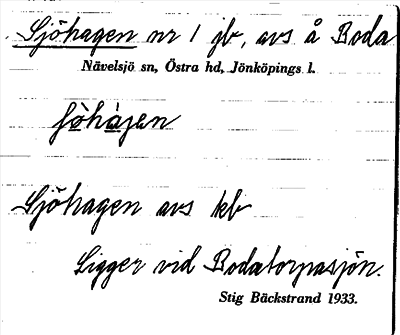 Sjöhagen nr 1 jb, avs å Boda
Nävelsjö sn, Östra hd, Jönköpings l.
ʃöhàgen
Sjöhagen avs kb
Ligger vid Bodatorpasjön.
Stig Bäckstrand 1933.